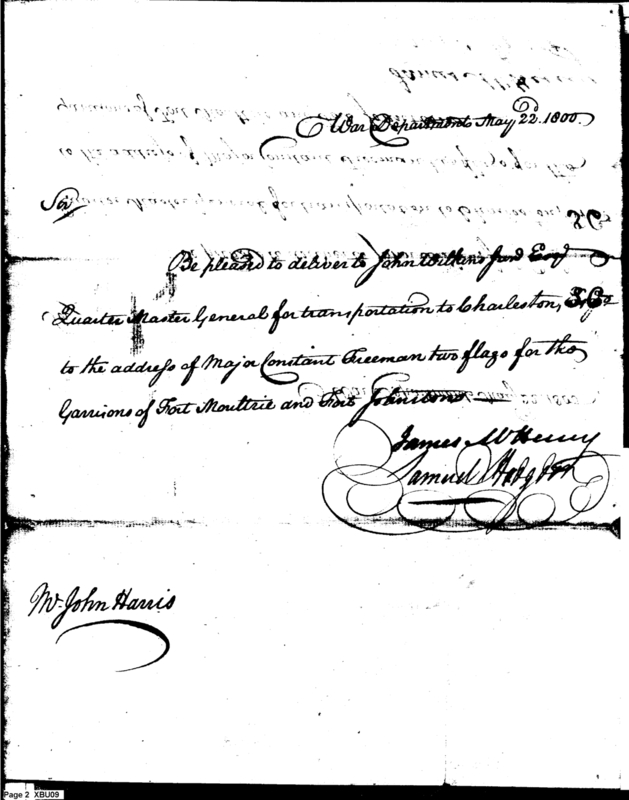 War Department May 22d. 1800.
Sir
Be pleased to deliver to John Wilkins Junr Esqr
Quarter Master General for transportation to Charleston, S. Ca
to the address of Major Constant Freeman two flags for the
Garrisons of Fort Moultrie and Fort Johnston
James McHenry
Samuel Hodgdon
Mr. John Harris
Page 2 XBU09